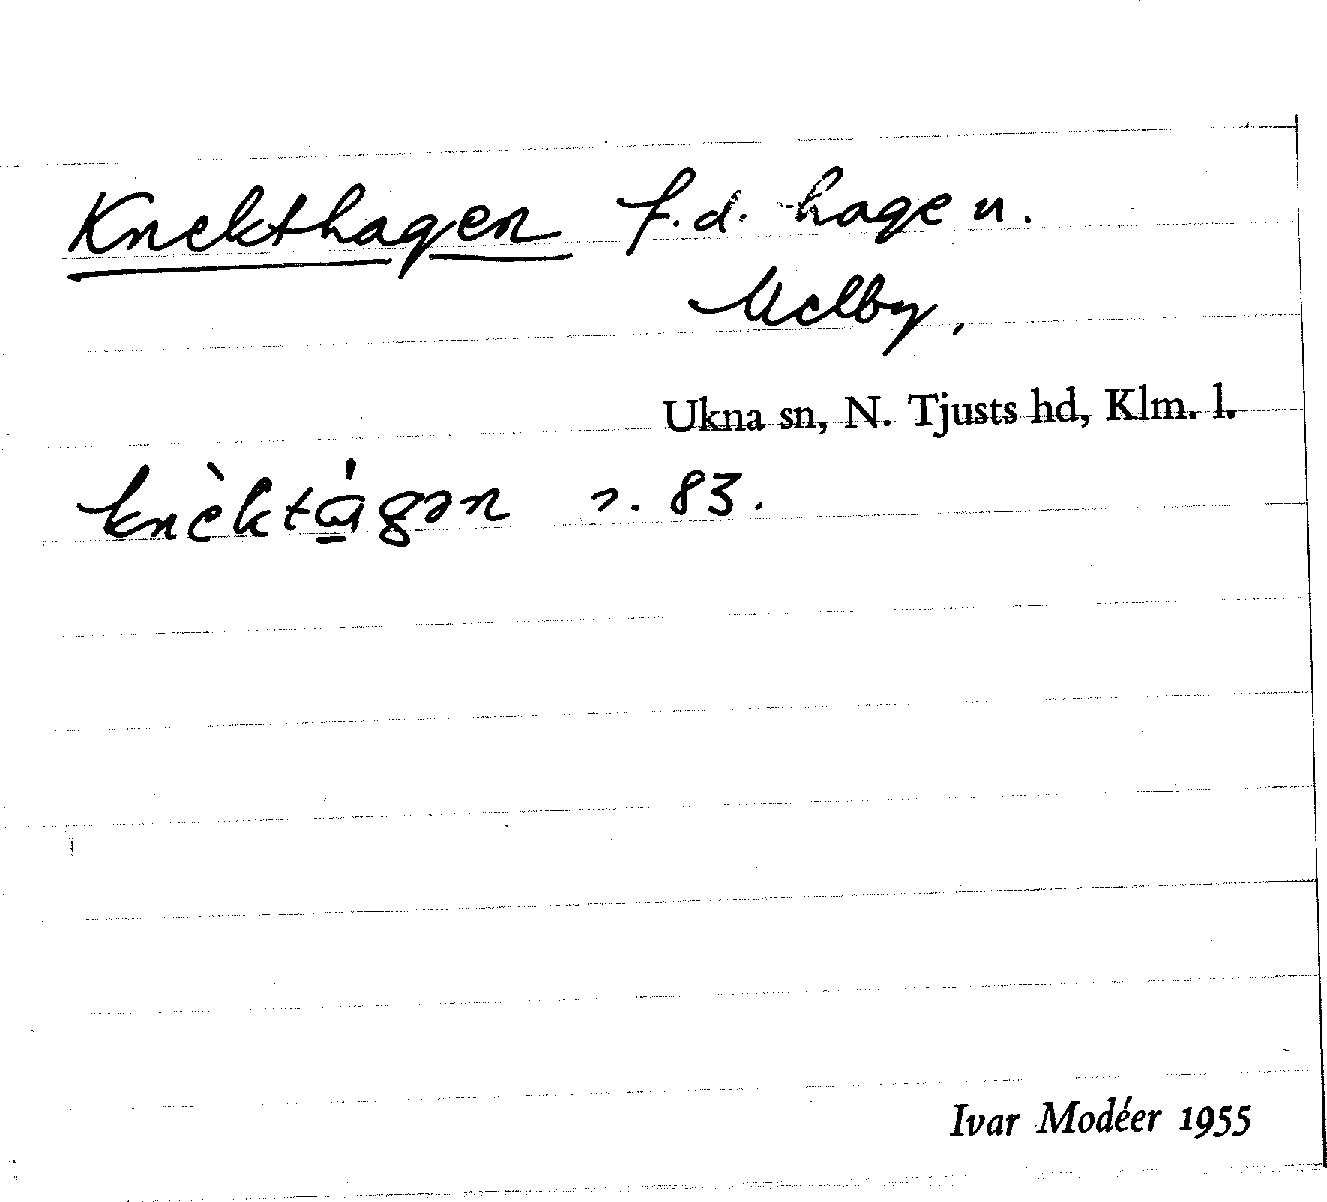 Knekthagen f.d. hage n.
Melby,
Ukna sn, N. Tjusts hd, Klm. l.
knὲktɑ́gən s. 83.
Ivar Modéer 1955